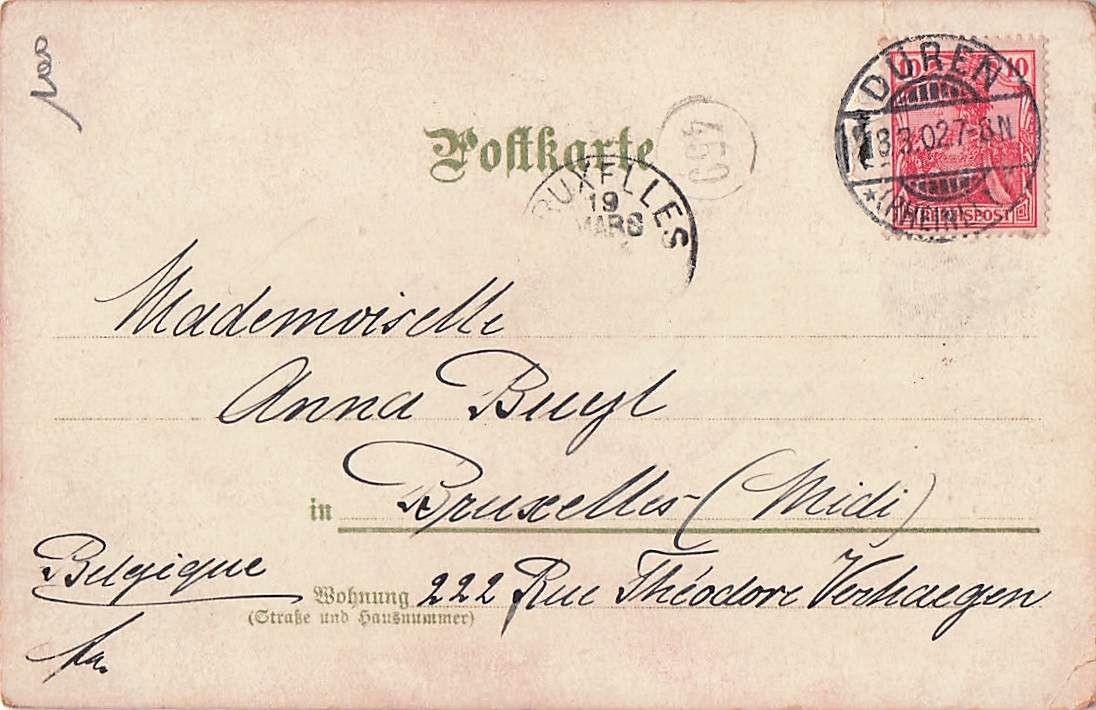 Postkarte
459
10 10
DÜREN
18.3.02.7-8N
*(RHEINL.)
REICHSPOST
BRUXELLES
19
MARS
Mademoiselle
Anna Buyl
in Bruxelles (Midi)
Belgique
Wohnung 222 Rue Théodore Verhaegen
(Straße und Hausnummer)